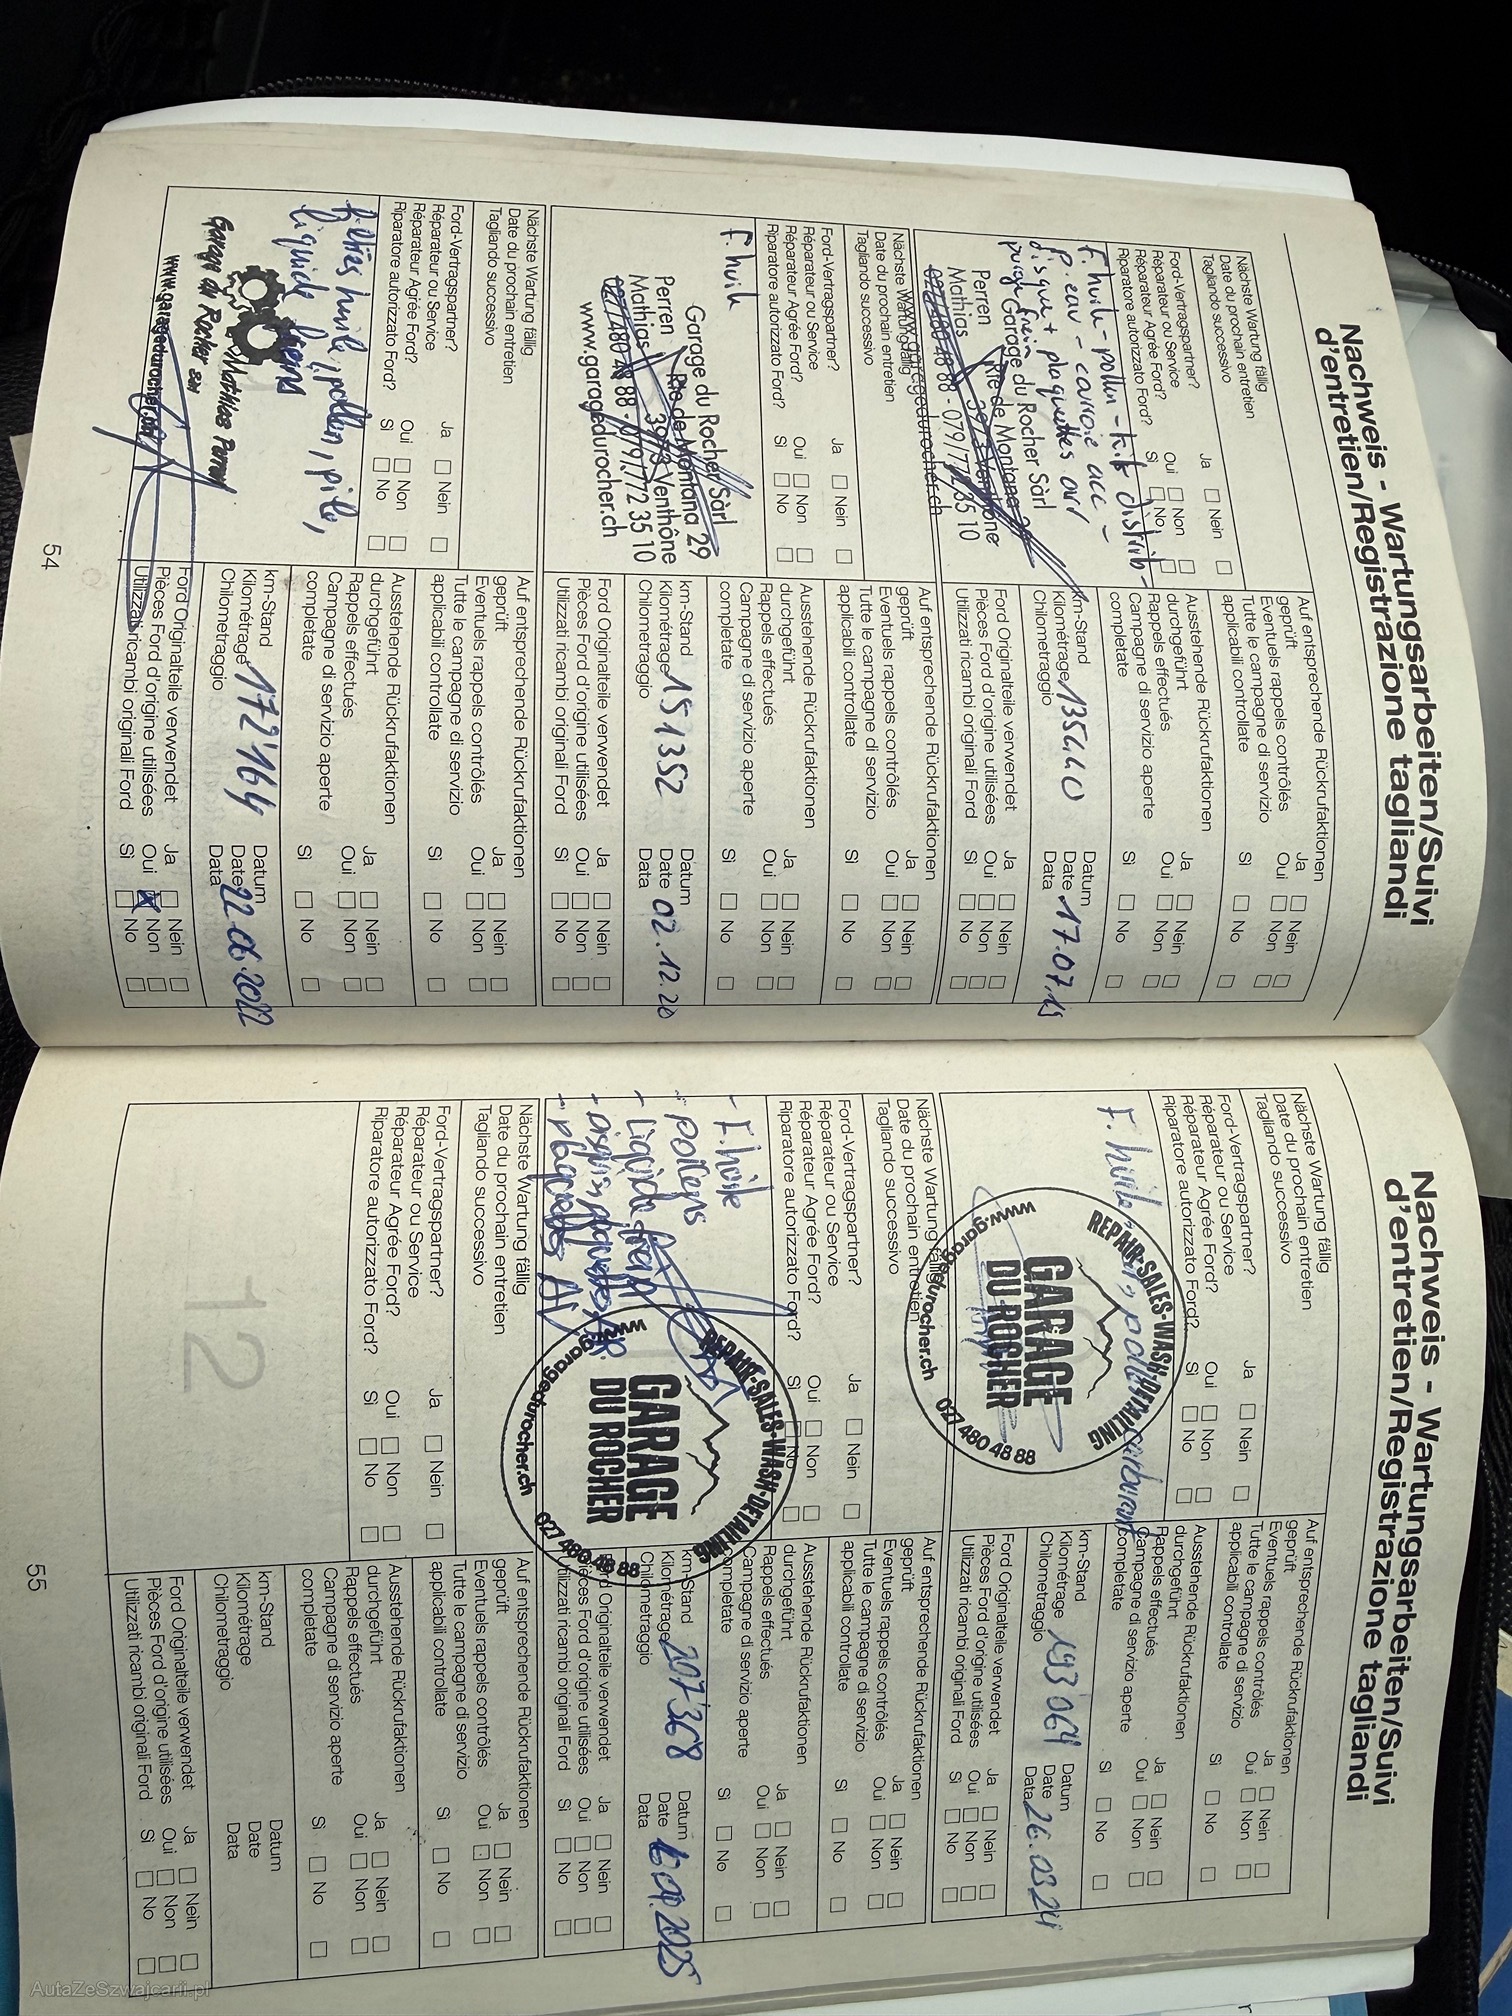 Nachweis - Wartungsarbeiten/Suivi
d'entretien/Registrazione tagliandi
Nächste Wartung fällig
Date du prochain entretien
Tagliando successivo
Ford-Vertragspartner?
Réparateur ou Service
Réparateur Agrée Ford?
Riparatore autorizzato Ford?
Ja Nein
Oui Non
Sì No
F. huile - pollen - kit distrib -
p. eau - courroie acc -
disque + plaquettes avr
purge frein
Garage du Rocher Sàrl
Perren Rte de Montana 29
Mathias 3973 Venthône
027/480 48 88 - 079/772 35 10
www.garagedurocher.ch
Auf entsprechende Rückrufaktionen
geprüft
Eventuels rappels contrôlés
Tutte le campagne di servizio
applicabili controllate
Ja Nein
Oui Non
Sì No
Ausstehende Rückrufaktionen
durchgeführt
Rappels effectués
Campagne di servizio aperte
completate
Ja Nein
Oui Non
Sì No
km-Stand
Kilométrage 135440
Chilometraggio
Datum
Date 17.07.19
Data
Ford Originalteile verwendet
Pièces Ford d'origine utilisées
Utilizzati ricambi originali Ford
Ja Nein
Oui Non
Sì No
Nächste Wartung fällig
Date du prochain entretien
Tagliando successivo
Ford-Vertragspartner?
Réparateur ou Service
Réparateur Agrée Ford?
Riparatore autorizzato Ford?
Ja Nein
Oui Non
Sì No
F. huile
Garage du Rocher Sàrl
Perren Rte de Montana 29
Mathias 3973 Venthône
027/480 48 88 - 079/772 35 10
www.garagedurocher.ch
Auf entsprechende Rückrufaktionen
geprüft
Eventuels rappels contrôlés
Tutte le campagne di servizio
applicabili controllate
Ja Nein
Oui Non
Sì No
Ausstehende Rückrufaktionen
durchgeführt
Rappels effectués
Campagne di servizio aperte
completate
Ja Nein
Oui Non
Sì No
km-Stand
Kilométrage 151352
Chilometraggio
Datum
Date 02.12.20
Data
Ford Originalteile verwendet
Pièces Ford d'origine utilisées
Utilizzati ricambi originali Ford
Ja Nein
Oui Non
Sì No
Nächste Wartung fällig
Date du prochain entretien
Tagliando successivo
Ford-Vertragspartner?
Réparateur ou Service
Réparateur Agrée Ford?
Riparatore autorizzato Ford?
Ja Nein
Oui Non
Sì No
filtres huile, pollen, pile,
liquide freins
Mathias Perren
Garage du Rocher sàrl
www.garagedurocher.ch
Auf entsprechende Rückrufaktionen
geprüft
Eventuels rappels contrôlés
Tutte le campagne di servizio
applicabili controllate
Ja Nein
Oui Non
Sì No
Ausstehende Rückrufaktionen
durchgeführt
Rappels effectués
Campagne di servizio aperte
completate
Ja Nein
Oui Non
Sì No
km-Stand
Kilométrage 172'164
Chilometraggio
Datum
Date 22.06.2022
Data
Ford Originalteile verwendet
Pièces Ford d'origine utilisées
Utilizzati ricambi originali Ford
Ja Nein
Oui Non
Sì No
54
Nachweis - Wartungsarbeiten/Suivi
d'entretien/Registrazione tagliandi
Nächste Wartung fällig
Date du prochain entretien
Tagliando successivo
Ford-Vertragspartner?
Réparateur ou Service
Réparateur Agrée Ford?
Riparatore autorizzato Ford?
Ja Nein
Oui Non
Sì No
F. huile, air, pollen, carburant
REPAIR-SALES-WASH-DETAILING
GARAGE
DU ROCHER
www.garagedurocher.ch
027 480 48 88
Auf entsprechende Rückrufaktionen
geprüft
Eventuels rappels contrôlés
Tutte le campagne di servizio
applicabili controllate
Ja Nein
Oui Non
Sì No
Ausstehende Rückrufaktionen
durchgeführt
Rappels effectués
Campagne di servizio aperte
completate
Ja Nein
Oui Non
Sì No
km-Stand
Kilométrage 193'064
Chilometraggio
Datum
Date
Data 26.03.24
Ford Originalteile verwendet
Pièces Ford d'origine utilisées
Utilizzati ricambi originali Ford
Ja Nein
Oui Non
Sì No
Nächste Wartung fällig
Date du prochain entretien
Tagliando successivo
Ford-Vertragspartner?
Réparateur ou Service
Réparateur Agrée Ford?
Riparatore autorizzato Ford?
Ja Nein
Oui Non
Sì No
- F. huile
- pollens
- Liquide frein
- disques, plaquettes
- plaquettes AV
REPAIR-SALES-WASH-DETAILING
GARAGE
DU ROCHER
www.garagedurocher.ch
027 480 48 88
Auf entsprechende Rückrufaktionen
geprüft
Eventuels rappels contrôlés
Tutte le campagne di servizio
applicabili controllate
Ja Nein
Oui Non
Sì No
Ausstehende Rückrufaktionen
durchgeführt
Rappels effectués
Campagne di servizio aperte
completate
Ja Nein
Oui Non
Sì No
km-Stand
Kilométrage 207'368
Chilometraggio
Datum
Date 2025
Data
Ford Originalteile verwendet
Pièces Ford d'origine utilisées
Utilizzati ricambi originali Ford
Ja Nein
Oui Non
Sì No
Nächste Wartung fällig
Date du prochain entretien
Tagliando successivo
Ford-Vertragspartner?
Réparateur ou Service
Réparateur Agrée Ford?
Riparatore autorizzato Ford?
Ja Nein
Oui Non
Sì No
12
Auf entsprechende Rückrufaktionen
geprüft
Eventuels rappels contrôlés
Tutte le campagne di servizio
applicabili controllate
Ja Nein
Oui Non
Sì No
Ausstehende Rückrufaktionen
durchgeführt
Rappels effectués
Campagne di servizio aperte
completate
Ja Nein
Oui Non
Sì No
km-Stand
Kilométrage
Chilometraggio
Datum
Date
Data
Ford Originalteile verwendet
Pièces Ford d'origine utilisées
Utilizzati ricambi originali Ford
Ja Nein
Oui Non
Sì No
55
AutaZeSzwajcarii.pl